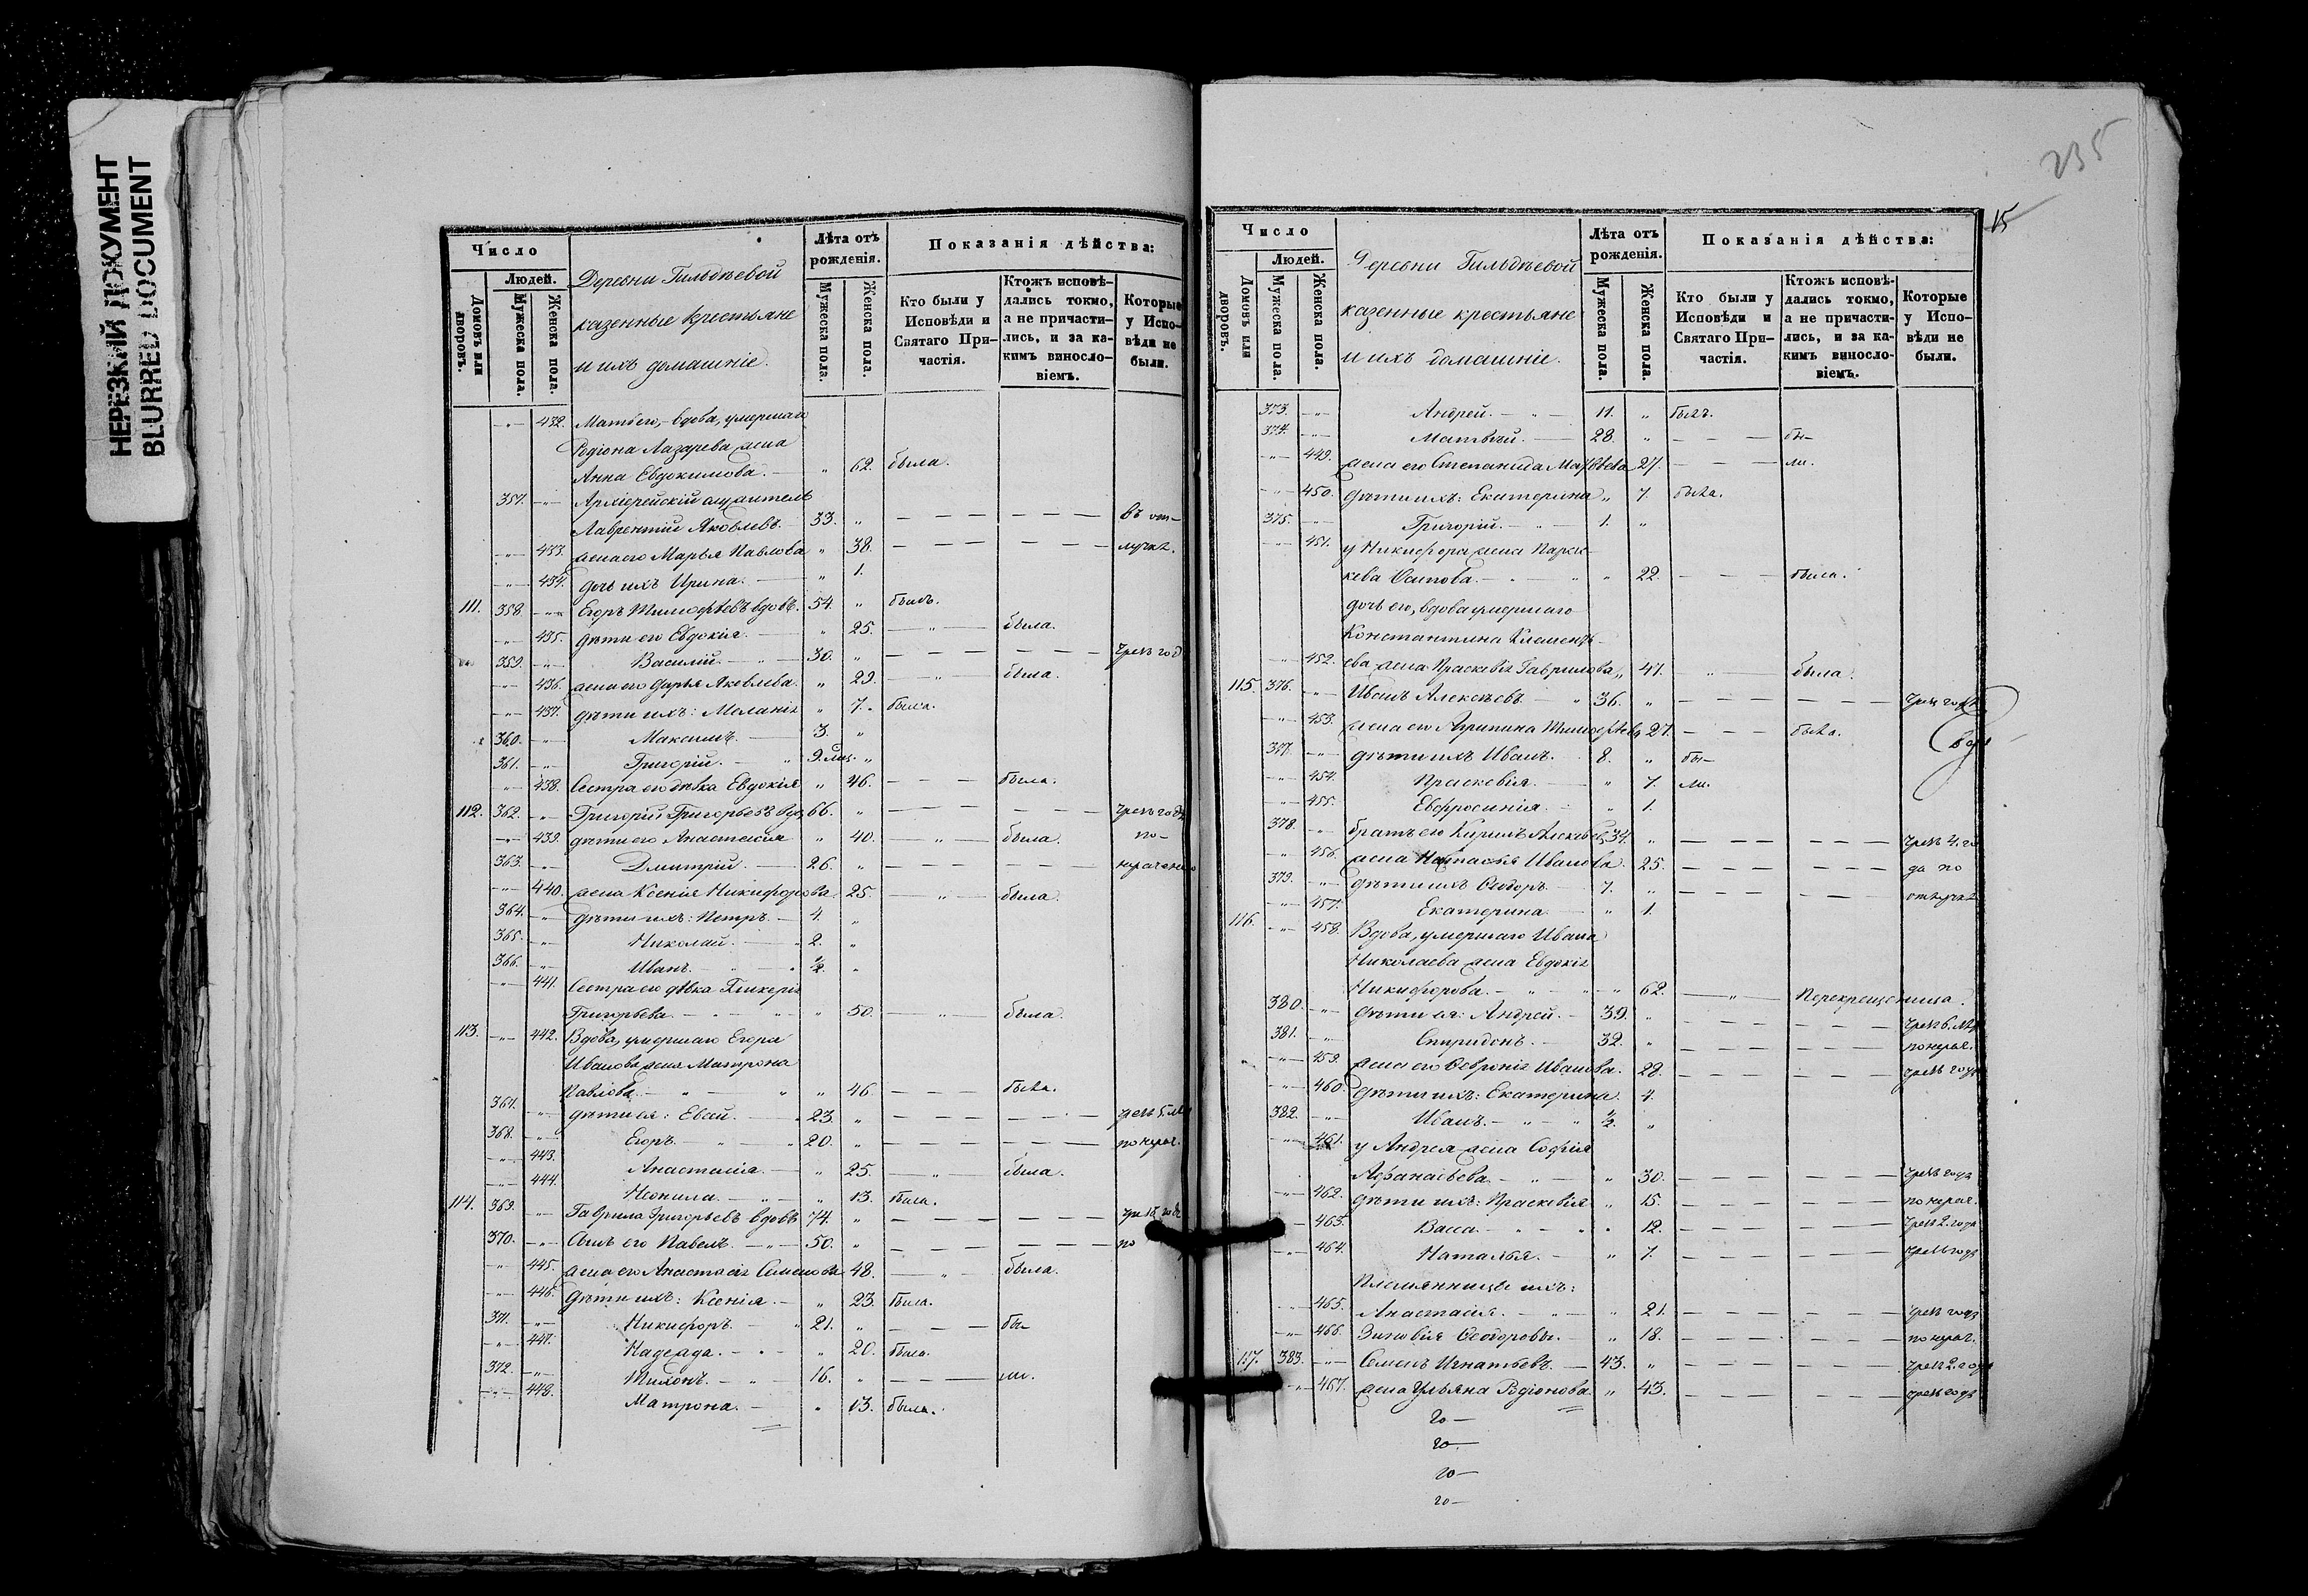 НЕРЕЗКИЙ ДОКУМЕНТ
BLURRED DOCUMENT
Число
Домовъ или дворовъ.
Людей.
Мужеска пола.
Женска пола.
Деревни Гильдѣевой
казенные крестьяне
и ихъ домашніе.
Лѣта отъ рожденія.
Мужеска пола.
Женска пола.
Показанія дѣйства:
Кто были у Исповѣди и Святаго Причастія.
Ктожъ исповѣдались токмо, а не причастились, и за какимъ винословіемъ.
Которые у Исповѣди не были.
-"- 432. Мать его, вдова, умершаго
Родіона Лазарева жена
Анна Евдокимова. — " 62. была.
357. -"- Архіерейскій
Лаврентій Яковлевъ. 33. " — — — — — — въ от-
-"- 433. жена его Марья Павлова " 38. — — — — — — лучкѣ.
-"- 434. дочь ихъ Ирина. — " 1.
111. 358. -"- Егоръ Тимофѣевъ вдовъ. 54. " былъ.
-"- 435. дѣти его Евдокія. — " 25. — " — была.
359. -"- Василій. — " — 30. " — — — — — — чрезъ год
-"- 436. жена его Дарья Яковлева. " 29. — " — была.
-"- 437. дѣти ихъ: Меланія " 7. была.
360. -"- Максимъ. — 3. "
361. -"- Григорій. — " 9. мц. "
-"- 438. Сестра его дѣвка Евдокія " 46. — — — была.
112. 362. -"- Григорій Григорьевъ вдов. 66. " — — — — — — чрезъ годъ
-"- 439. дѣти его Анастасія " 40. — " — была. по-
363. -"- Дмитрій. — 26. " — — — — — —
-"- 440. жена Ксенія Никифорова. 25. — " — была.
364. -"- дѣти ихъ: Петръ. — 4. "
365. -"- Николай. — " 2. "
366. -"- Иванъ. — " — " ½. "
-"- 441. Сестра его дѣвка Гликерія
Григорьева. — " — " 50. — " — была.
113. -"- 442. Вдова, умершаго Егора
Иванова жена Матрона
Павлова — " — " " 46. — — — была.
367. -"- дѣти ея: 23. " — — — — — —
368. -"- Егоръ. — " — " 20. " — — — — — — по нерач.
-"- 443. Анастасія. — " 25. — " — была.
-"- 444. Неонила. — " — " 13. была.
114. 369. -"- Гаврила Григорьевъ вдовъ 74. " — — — — — —
370. -"- Сынъ его Павелъ. — " — 50. " — — — — — — по
-"- 445. жена его Анастасія Семенова 48. — " — была.
-"- 446. дѣти ихъ: Ксенія. — " 23. была.
371. -"- Никифоръ. — " 21. " — — — бы-
-"- 447. Надежда. — " — " 20. была.
372. -"- Тихонъ. — " — 16. " — — — ли.
-"- 448. Матрона. — " 13. была.
235
15
Число
Домовъ или дворовъ.
Людей.
Мужеска пола.
Женска пола.
Деревни Гильдѣевой
казенные крестьяне
и ихъ домашніе.
Лѣта отъ рожденія.
Мужеска пола.
Женска пола.
Показанія дѣйства:
Кто были у Исповѣди и Святаго Причастія.
Ктожъ исповѣдались токмо, а не причастились, и за какимъ винословіемъ.
Которые у Исповѣди не были.
373. -"- Андрей. — " — 11. " былъ.
374. -"- Матвѣй. — 28. " — — — бы-
-"- 449. жена его Степанида Матвѣева 27. — — — ли.
-"- 450. дѣти ихъ: Екатерина " 7. была.
375. -"- Григорій. — " — 1. "
-"- 451. у Никифора жена Параске-
кева Осипова. — " — " " 22. — — — была.
дочь его, вдова умершаго
Константина Клемен-
-"- 452. ева жена Праскевія Гаврилова " 47. — " — была.
115. 376. -"- Иванъ Алексѣевъ. — " 36. " — — — — — —
-"- 453. жена его Агрипина Тимофѣева 27. — — — была.
377. -"- дѣти ихъ Иванъ. 8. " бы-
-"- 454. Праскевія. — " 7. ли.
-"- 455. Евфросинія. — " 1.
378. -"- братъ его Кирилъ Алексѣев. 34. " — — — — — — чрезъ 4. го
-"- 456. жена Наталья Иванова. 25. — — — — — — да по
379. -"- дѣти ихъ Ѳедоръ. 7. " — — — — — — отлучкѣ
-"- 457. Екатерина. — " 1.
116. -"- 458. Вдова, умершаго Ивана
Николаева жена Евдокія
Никифорова. — " — " — " 62. — " — Перекрещеница.
380. -"- дѣти ея: Андрей. — 39. " — — — — — —
381. -"- Спиридонъ. — 32. " — — — — — — по нерач.
-"- 459. жена его Февронія Иванова. 28. — — — — — — чрезъ годъ
-"- 460. дѣти ихъ: Екатерина. 4.
382. -"- Иванъ. — " — " ½. "
-"- 461. у Андрея жена Софія
Афанасьева. — " — " 30. — — — — — — чрезъ годъ
-"- 462. дѣти ихъ: Праскевія " 15. — — — — — — по нерач.
463. Васса. — " — " " 12. — — — — — — чрезъ 2. года
-"- 464. Наталья. — " 7. — — — — — — чрезъ годъ
Племянницы ихъ:
-"- 465. Анастасія. — " — " 21. — — — — — — чрезъ годъ
-"- 466. Зиновія Ѳеодоровы. — " 18. — — — — — — по нерач.
117. 383. -"- Семенъ Игнатьевъ. — 43. " — — — — — — чрезъ 2. года
-"- 467. жена Ульяна Родіонова. " 43. — — — — — — чрезъ годъ
20 —
20 —
20 —
20 —